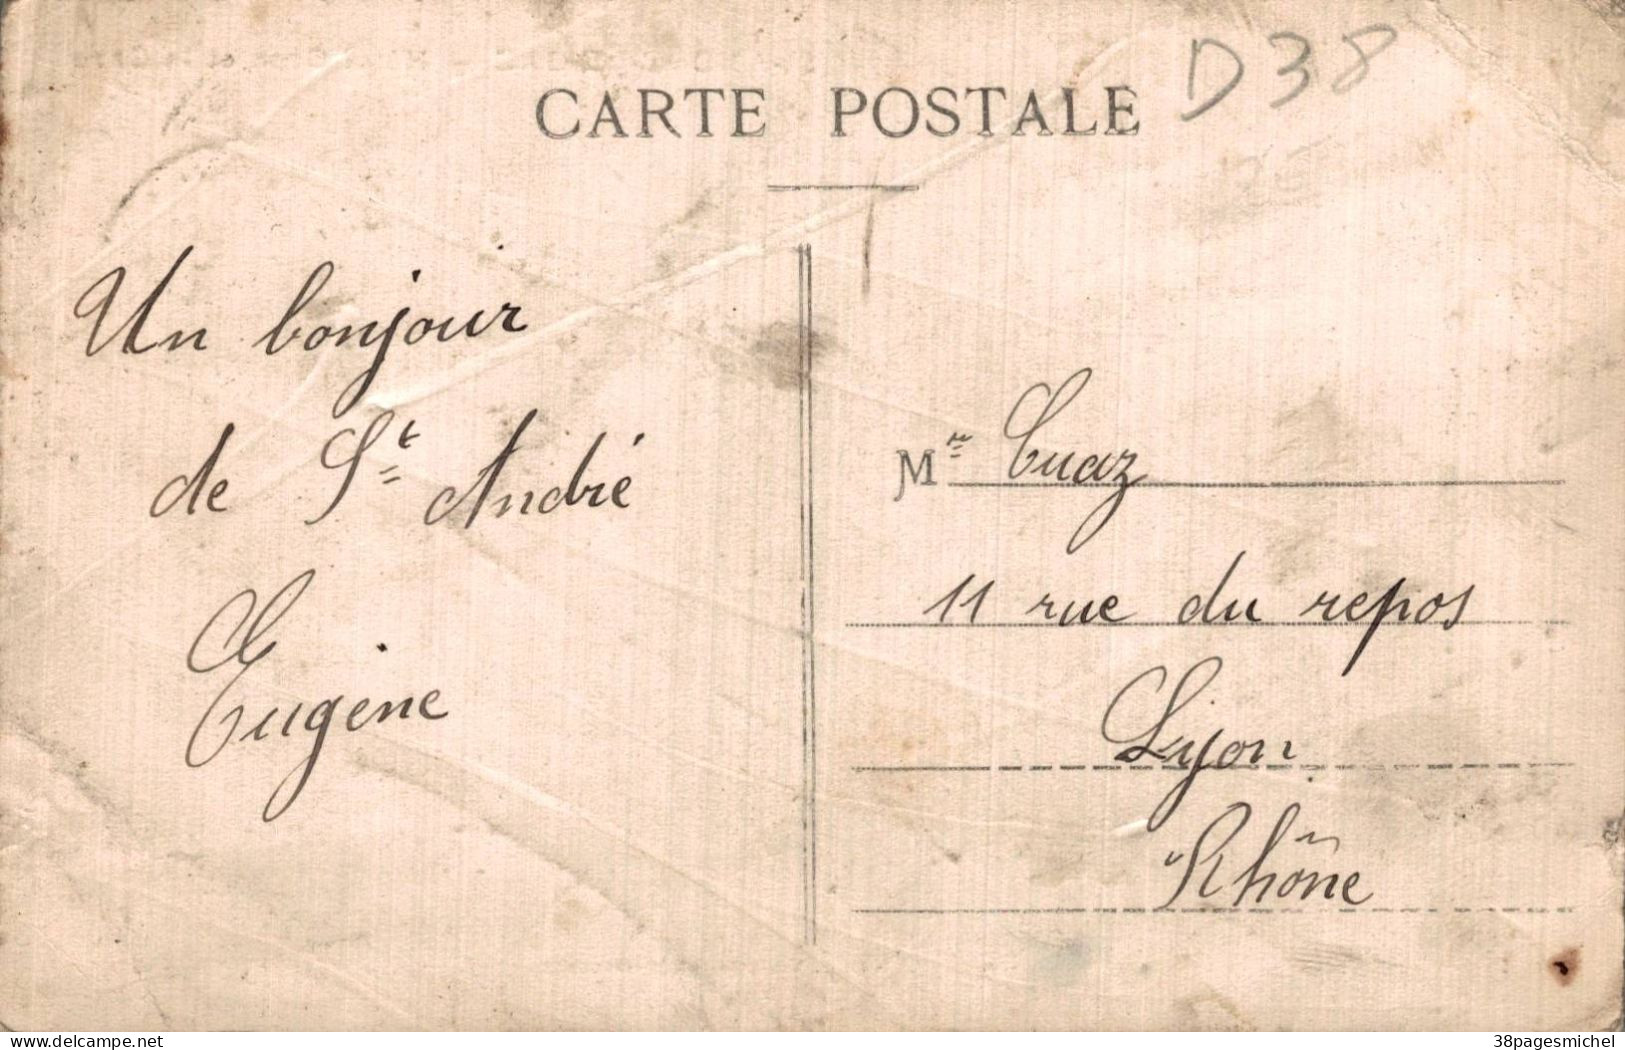 CARTE POSTALE
D38
Un bonjour
de St André
Eugène
Mr Cuaz
11 rue du repos
Lyon
Rhône
delcampe.net
38pagesmichel